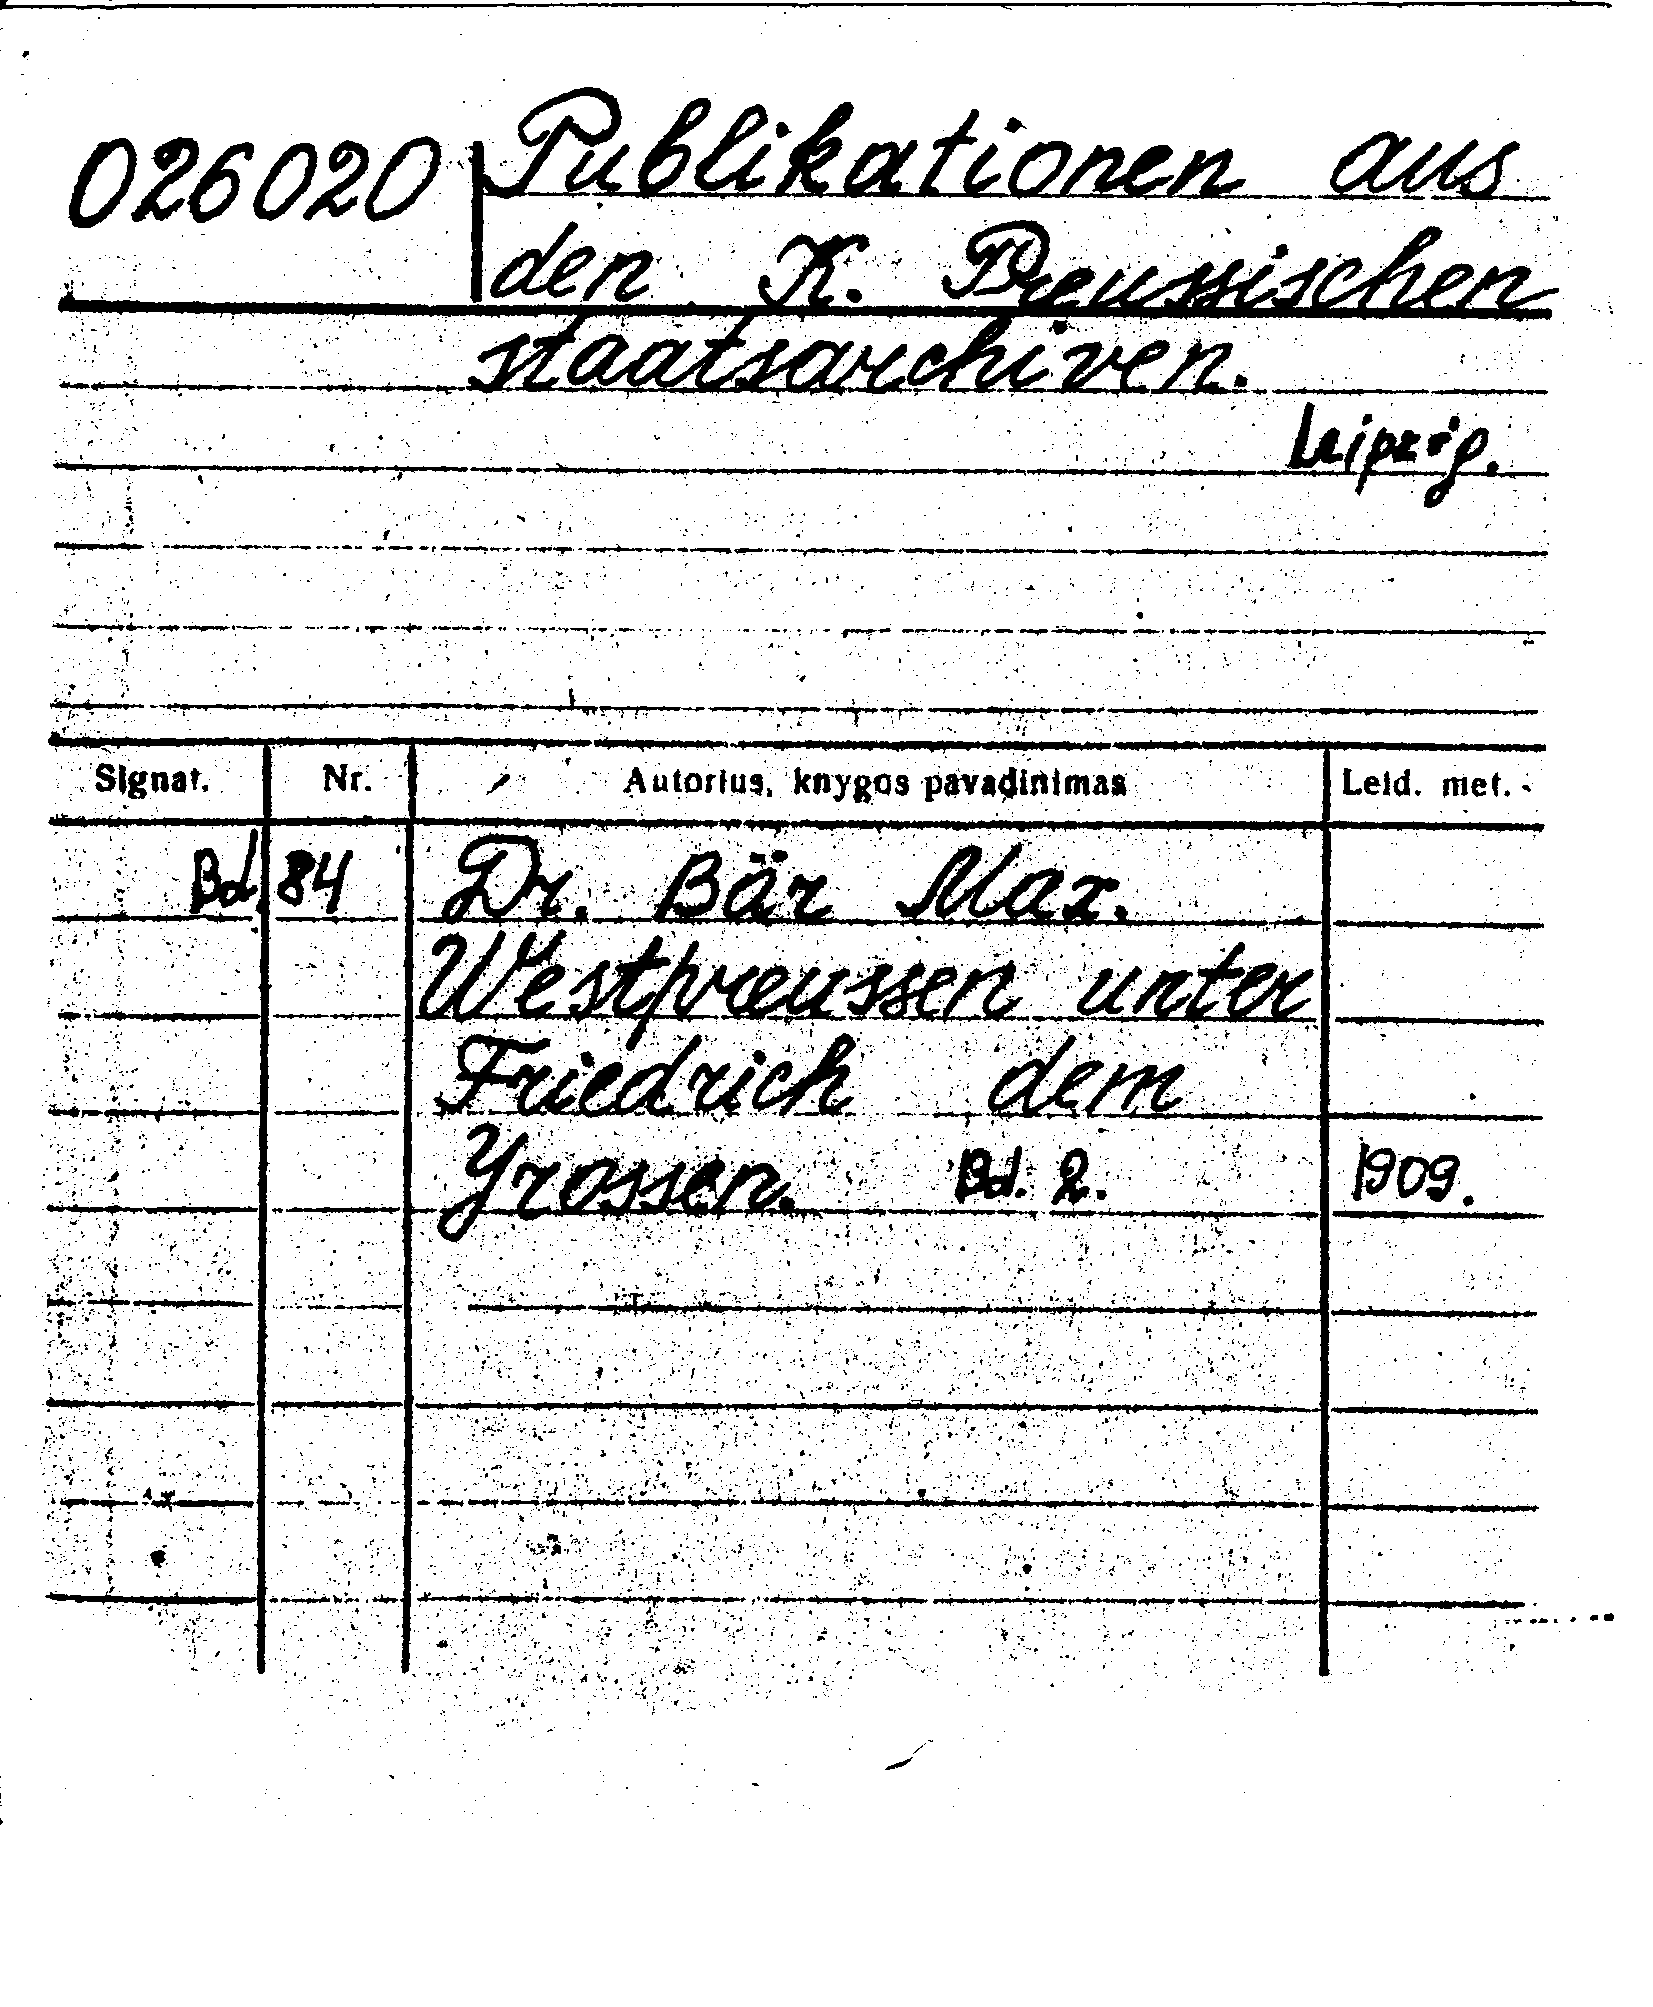 026020 Publikationen aus
den K. Preussischen
staatsarchiven.
Leipzig.
Signat. Nr. Autorius, knygos pavadinimas Leid. met.
Bd. 84 Dr. Bär Max.
Westpreussen unter
Friedrich dem
Grossen. Bd. 2. 1909.